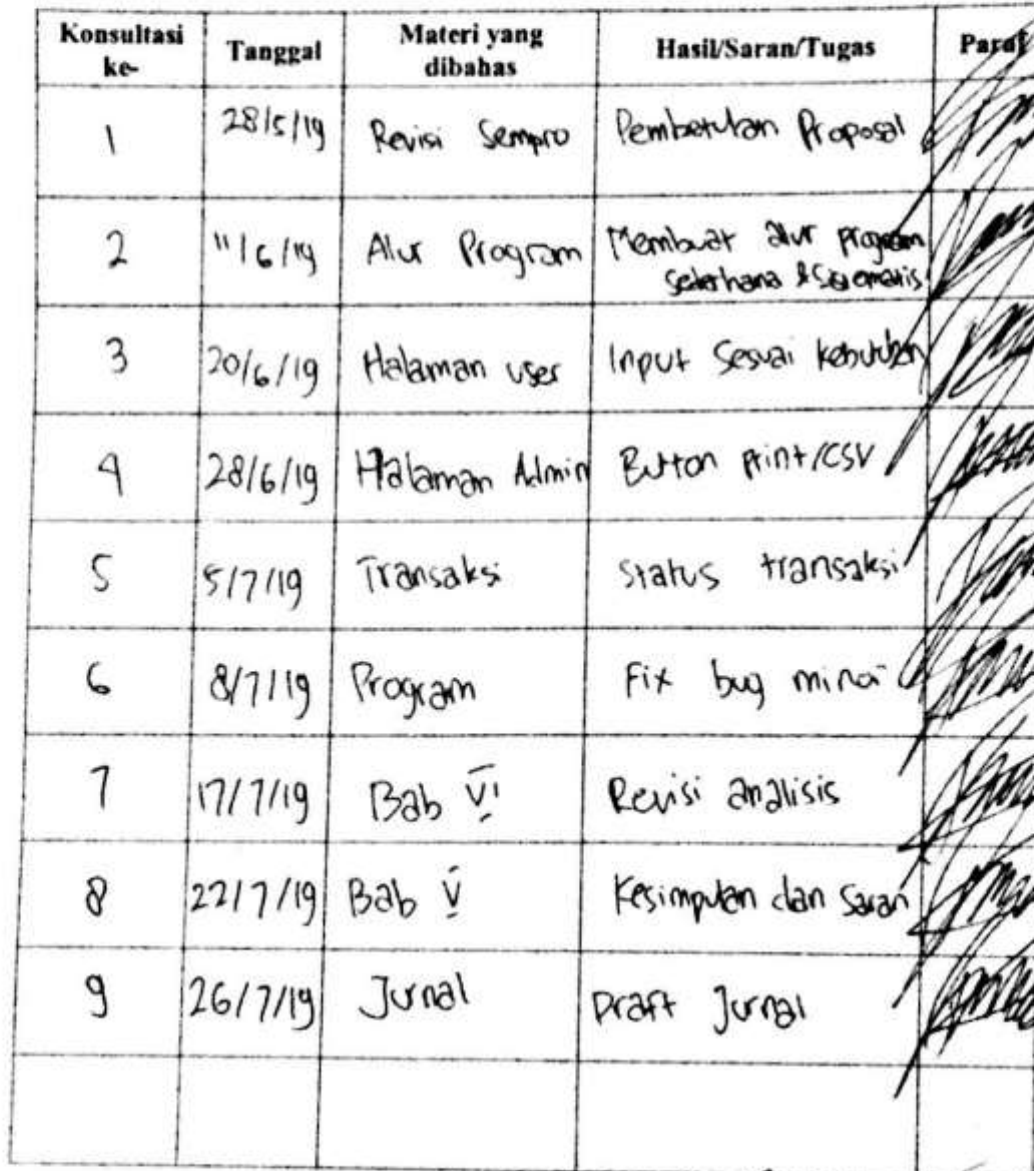 Konsultasi ke- Tanggal Materi yang dibahas Hasil/Saran/Tugas Paraf
1 28/5/19 Revisi Sempro Pembetulan Proposal
2 11/6/19 Alur Program Membuat alur program
sederhana & Sistematis
3 20/6/19 Halaman user Input Sesuai kebutuhan
4 28/6/19 Halaman Admin Button print/CSV
5 5/7/19 Transaksi Status transaksi
6 8/7/19 Program Fix bug minor
7 17/7/19 Bab VI Revisi analisis
8 22/7/19 Bab V Kesimpulan dan Saran
9 26/7/19 Jurnal Draft Jurnal